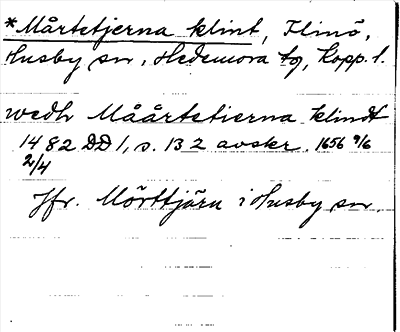 *Mårtstjerna klint, Flinö,
Husby sn, Hedemora tg, Kopp. l.
wedh Måårtstierna klindt
1482 DD 1, s. 132 avskr. 1656 9/6
2/4
Jfr. Mörttjärn i Husby sn.